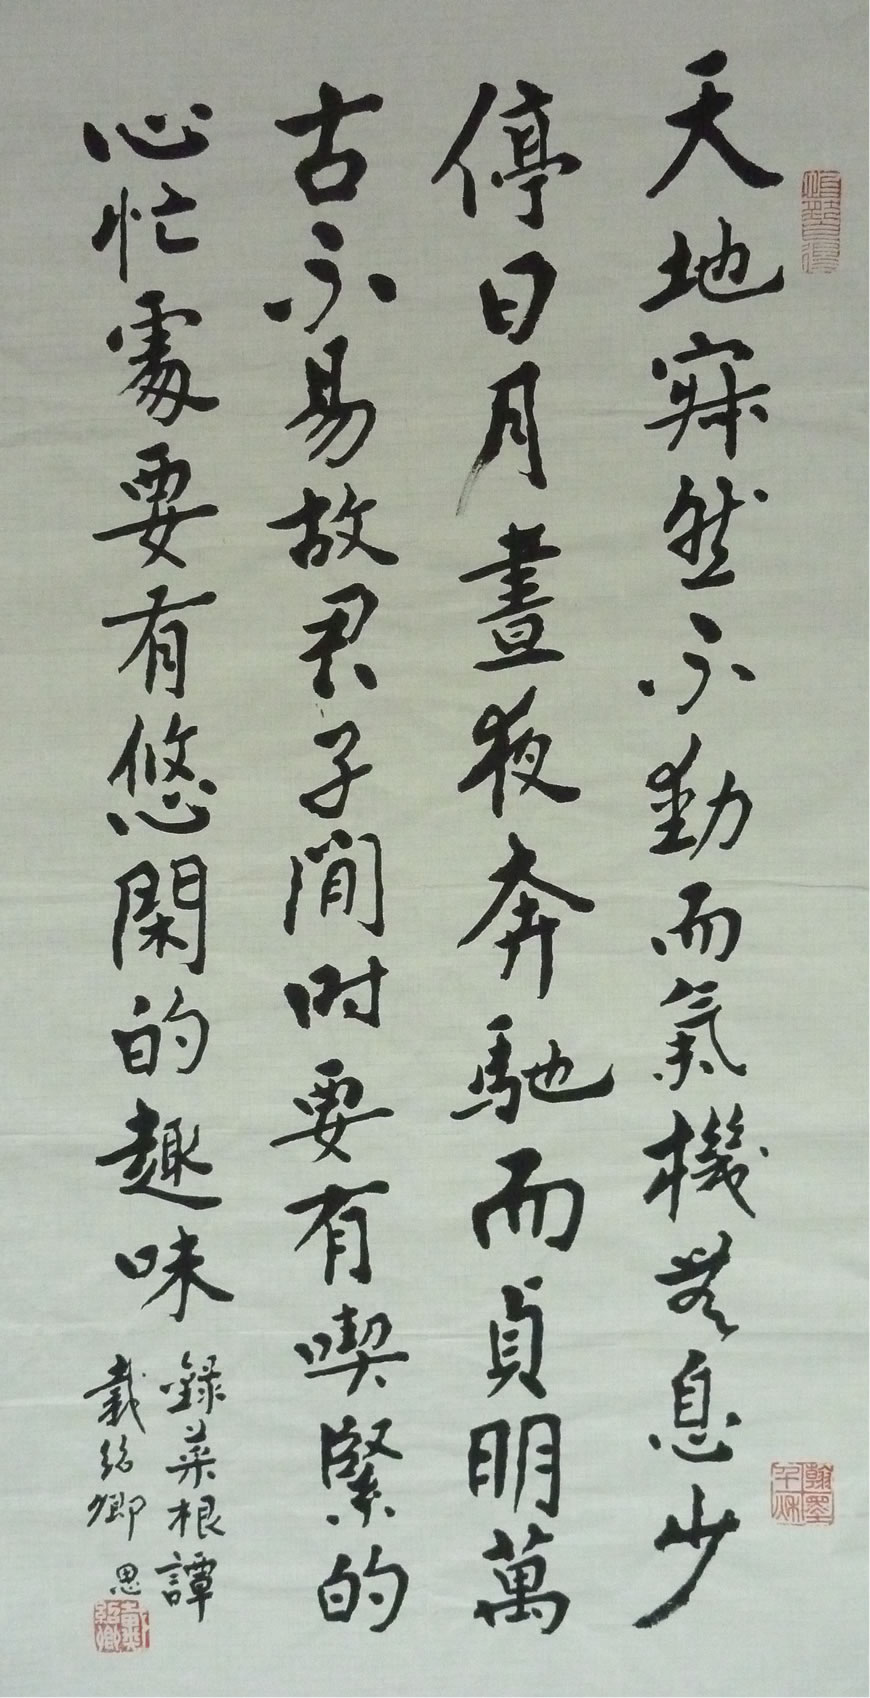 天地寂然不動而氣機無息少
停日月晝夜奔馳而貞明萬
古不易故君子閒時要有喫緊的
心忙處要有悠閑的趣味
錄菜根譚
戴紹卿
戴紹卿
翰墨千秋